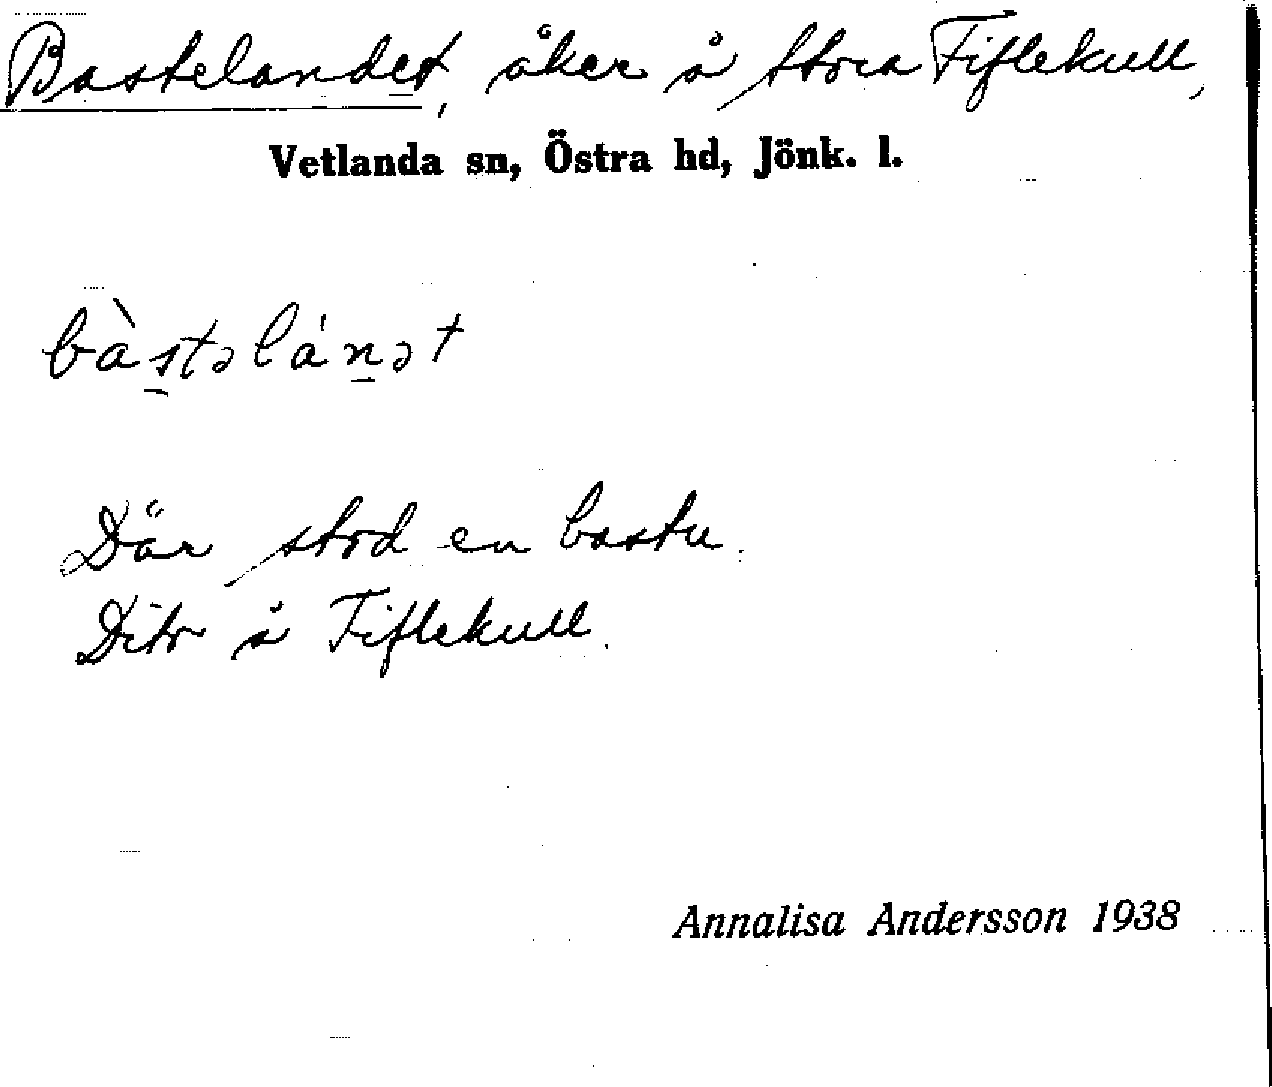 Bastelandet, åker å Stora Fiflekull,
Vetlanda sn, Östra hd, Jönk. l.
bàstəlánət
Där stod en bastu.
Dito å Fiflekull.
Annalisa Andersson 1938